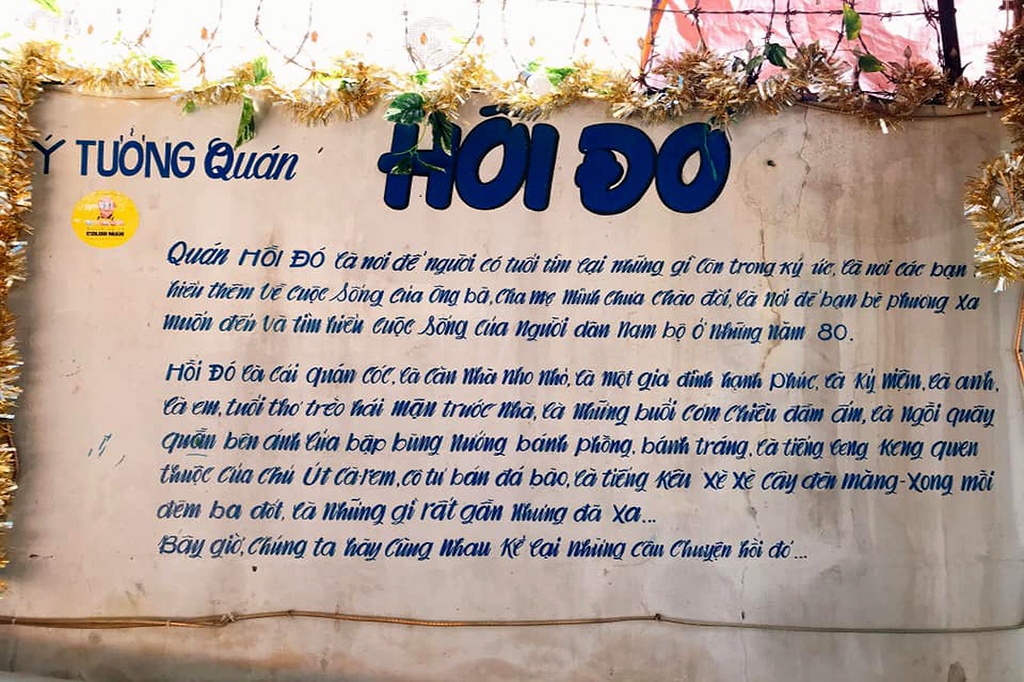 Ý TƯỞNG Quán HỒI ĐÓ
COLOR MAN
Quán HỒI ĐÓ là nơi để người có tuổi tìm lại những gì còn trong ký ức, là nơi các bạn
hiểu thêm về cuộc sống của ông bà, cha mẹ mình chưa chào đời, là nơi để bạn bè phương xa
muốn đến và tìm hiểu cuộc sống của người dân Nam bộ ở những năm 80.
HỒI ĐÓ là cái quán cóc, là căn nhà nho nhỏ, là một gia đình hạnh phúc, là kỷ niệm, là anh,
là em, tuổi thơ trèo hái mận trước nhà, là những buổi cơm chiều đầm ấm, là ngồi quây
quần bên ánh lửa bập bùng nướng bánh phồng, bánh tráng, là tiếng leng keng quen
thuộc của chú Út cà-rem, cô tư bán đá bào, là tiếng kêu xè xè cây đèn măng-xong mỗi
đêm ba đốt, là những gì rất gần nhưng đã xa...
Bây giờ, chúng ta hãy cùng nhau kể lại những câu chuyện hồi đó...